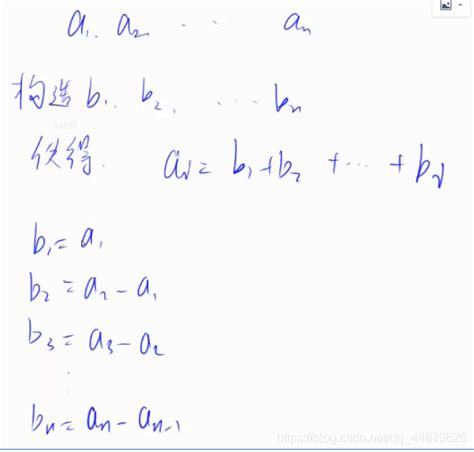 a₁, a₂ ... aₙ
构造 b₁, b₂, ... bₙ
使得. aᵢ = b₁+b₂ + ... + bᵢ
b₁ = a₁
b₂ = a₂ - a₁
b₃ = a₃ - a₂
⋮
bₙ = aₙ - aₙ₋₁
https://blog.csdn.net/qq_44879626